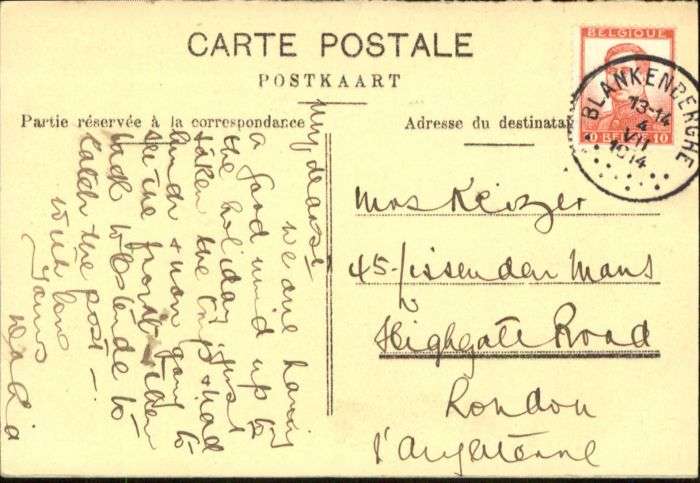 CARTE POSTALE
POSTKAART
Partie réservée à la correspondance
Adresse du destinata
BELGIQUE
BELGIË
10
BLANKENBERGHE
13-14
4
VII
1914
My dearest
we are having
a good wind up to
the holiday just
taken the trip & had
lunch & now going to
the front then
back Westende to
catch the post —
with love
Yours
Mrs Keizer
45 Lissenden Mans
Highgate Road
London
l'Angleterre